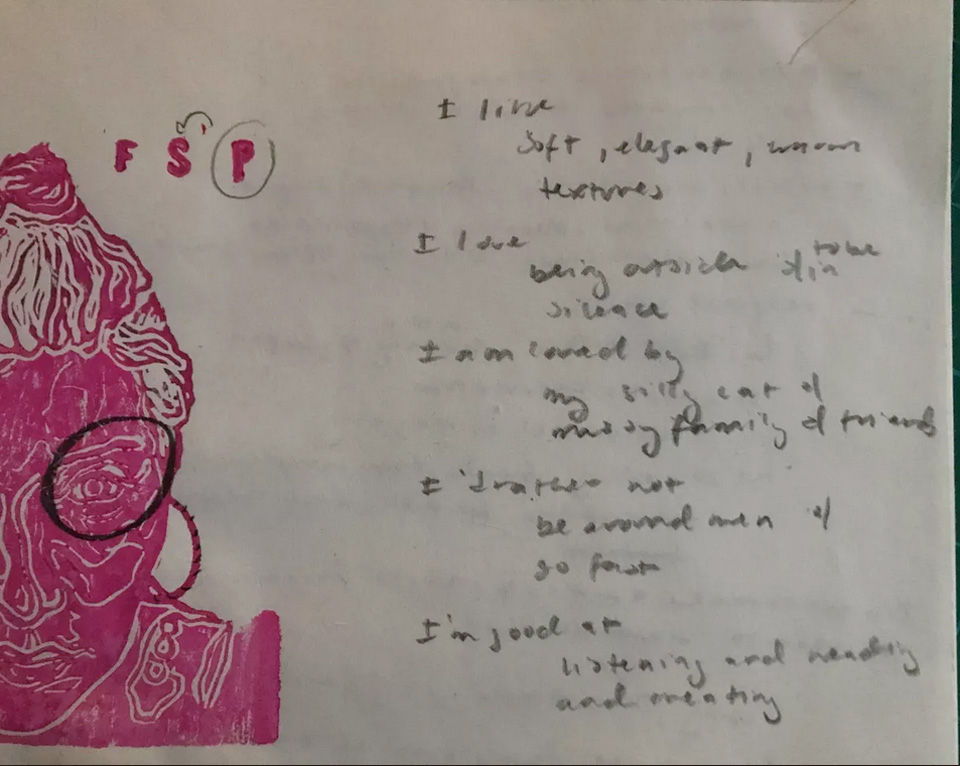 F S P
I like
soft, elegant, warm
textures
I love
being outside & in to be
silence
I am loved by
my silly cat &
my family & friends
I'd rather not
be around men &
go fast
I'm good at
listening and reading
and creating